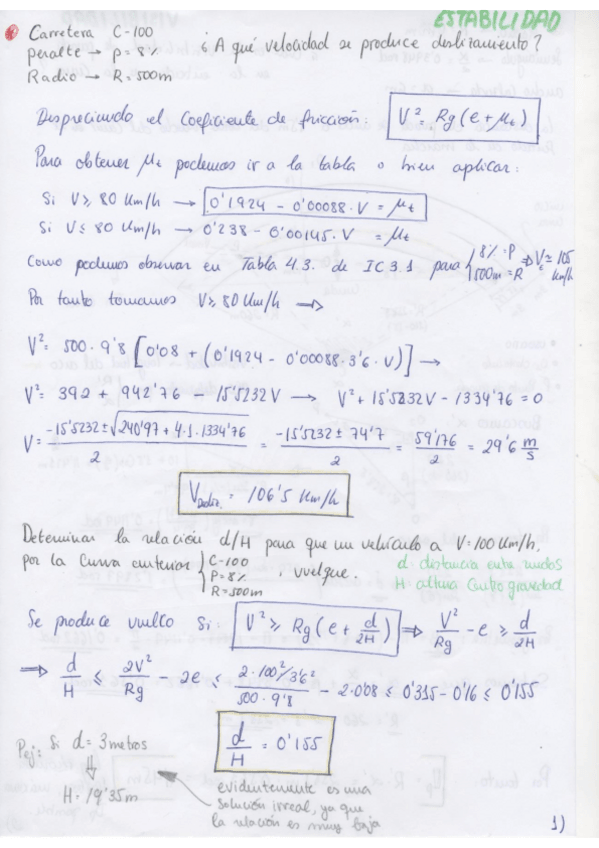 ESTABILIDAD
Carretera C-100
peralte → p = 8%
Radio → R = 500m
¿A qué velocidad se produce deslizamiento?
Despreciando el coeficiente de fricción: V² = Rg(e + μt)
Para obtener μt podemos ir a la tabla o bien aplicar:
Si V ≥ 80 Km/h → 0'1924 - 0'00088·V = μt
Si V ≤ 80 Km/h → 0'238 - 0'00145·V = μt
Como podemos observar en Tabla 4.3. de IC 3.1 para { 8% = P 500m = R ⇒ V ≃ 105 Km/h
Por tanto tomamos V ≥ 80 Km/h →
V² = 500·9'8 [0'08 + (0'1924 - 0'00088·3'6·V)] →
V² = 392 + 942'76 - 15'5232V → V² + 15'5232V - 1334'76 = 0
V = (-15'5232 ± √(240'97 + 4·1·1334'76)) / 2 = (-15'5232 ± 74'7) / 2 = 59'176 / 2 = 29'6 m/s
Vdesliz. = 106'5 Km/h
Determinar la relación d/H para que un vehículo a V=100 Km/h.
por la curva anterior { C-100 P=8% R=500m ; vuelque.
d: distancia entre ruedas
H = altura centro gravedad
Se produce vuelco si: V² ≥ Rg(e + d/2H) ⇒ V²/Rg - e ≥ d/2H
⇒ d/H ≤ 2V²/Rg - 2e ≤ (2·100²/3'6²)/(500·9'8) - 2·0'08 ≤ 0'335 - 0'16 ≤ 0'155
d/H = 0'155
Pej: Si d = 3 metros
⇓
H = 19'35m
evidentemente es una
solución irreal, ya que
la relación es muy baja
1)